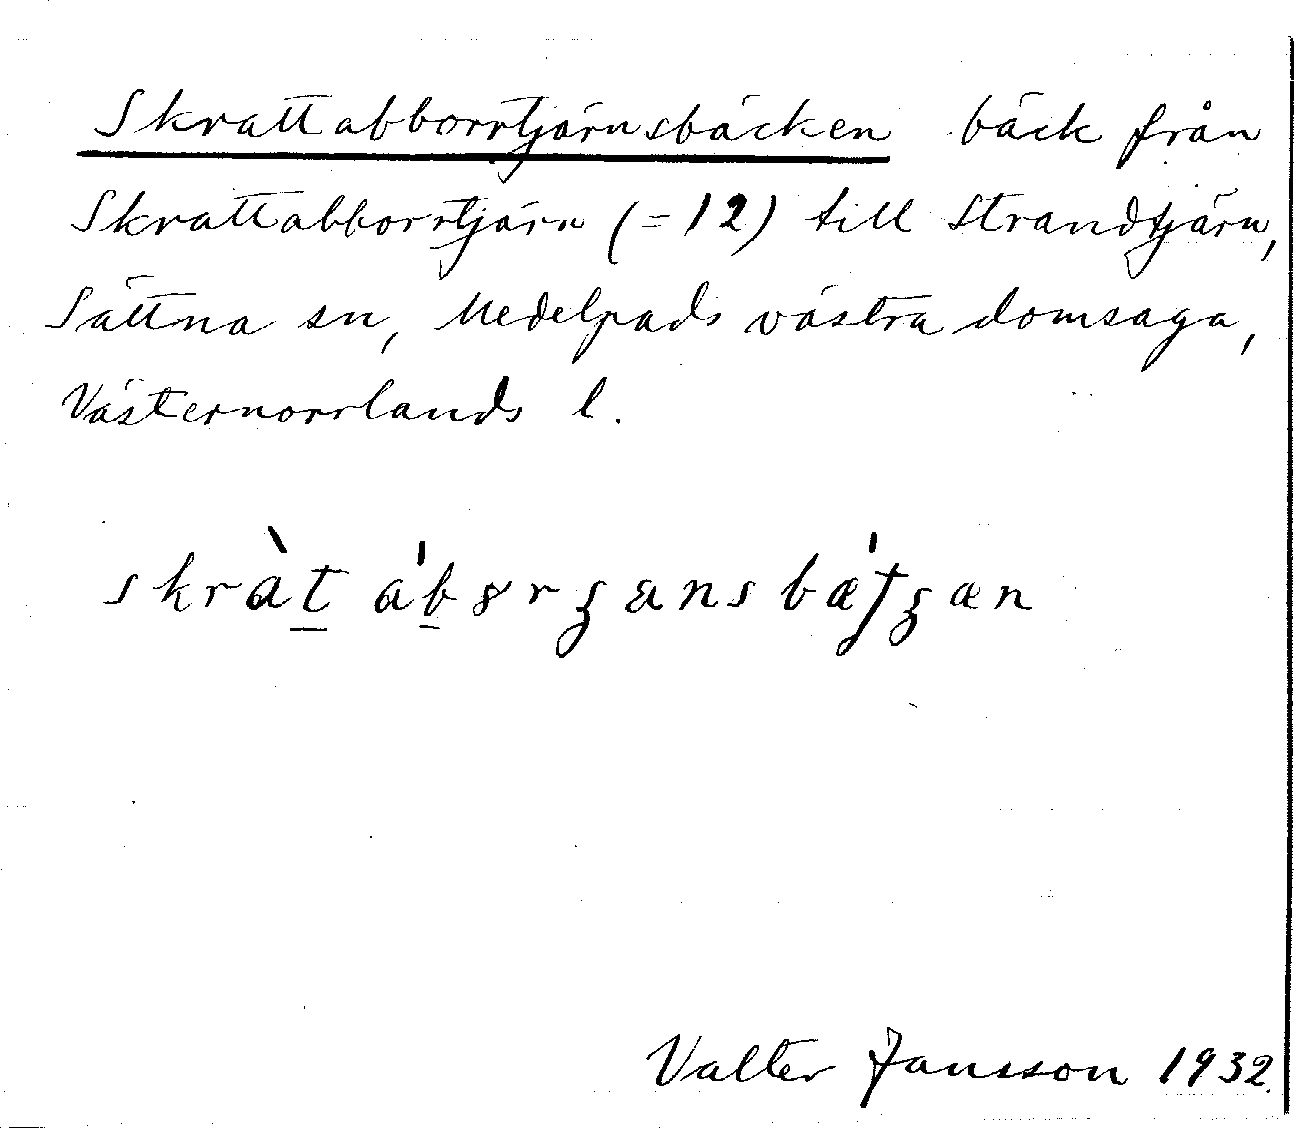 Skrattabborrtjärnsbäcken bäck från
Skrattabborrtjärn (= 12) till Strandtjärn,
Sättna sn, Medelpads västra domsaga,
Västernorrlands l.
Valter Jansson 1932.